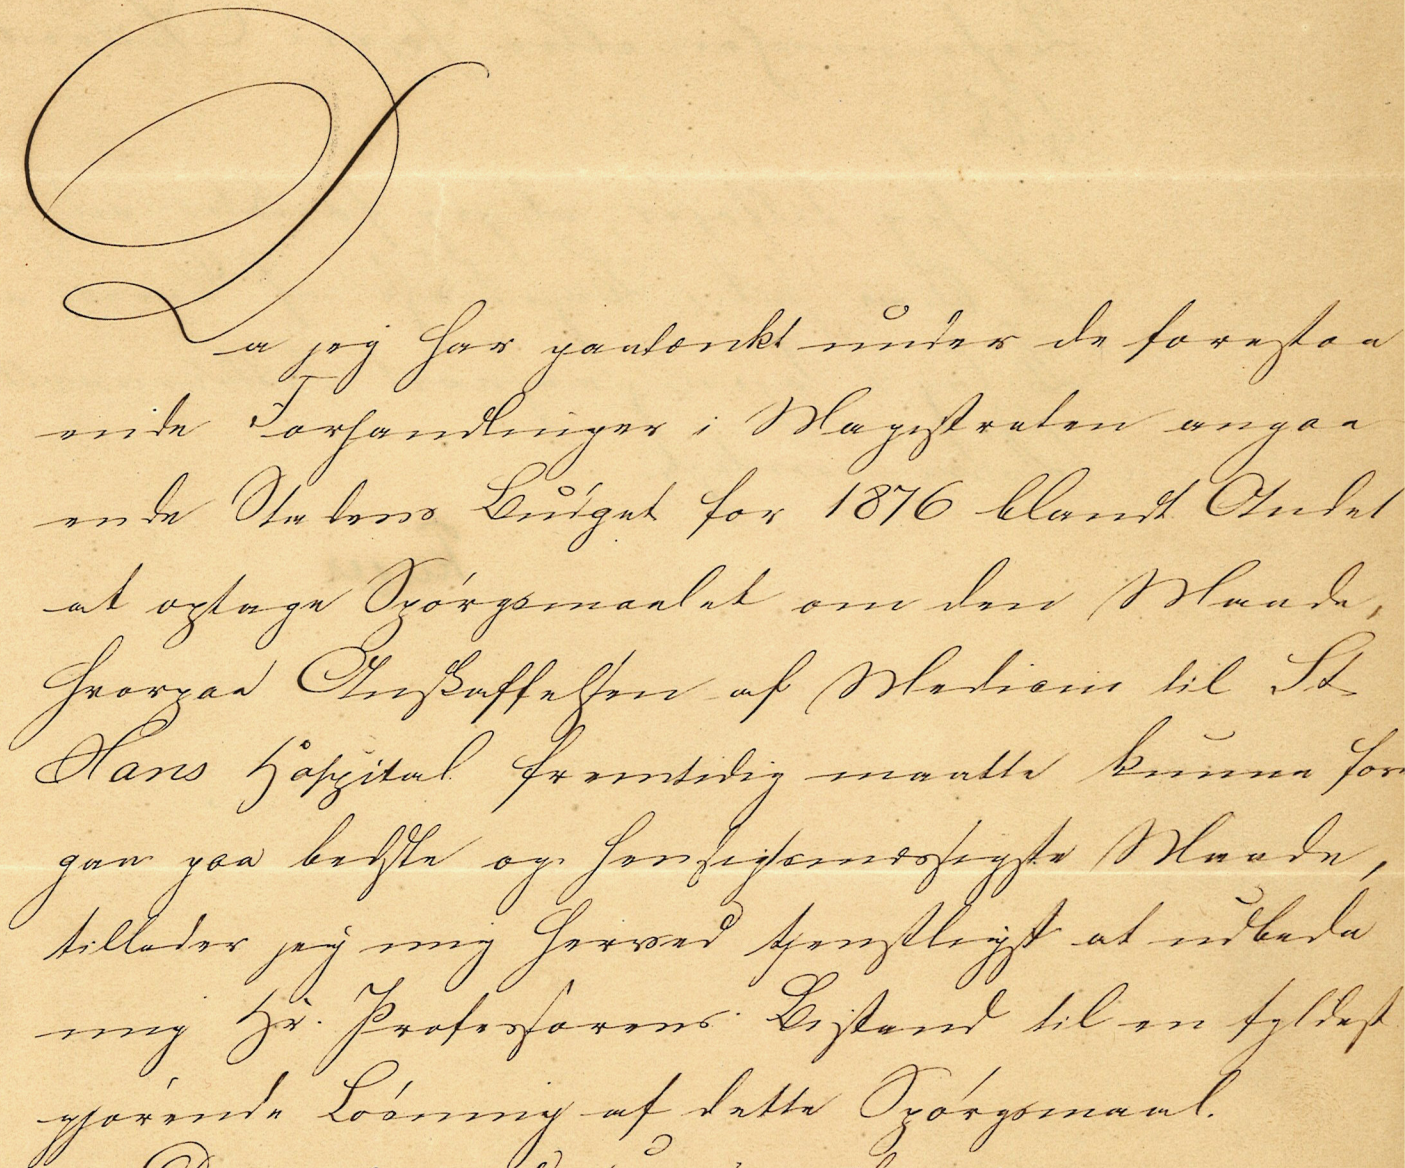 Da jeg har paatænkt under de forestaa
ende Forhandlinger i Magistraten angaa
ende Stadens Budget for 1876 blandt Andet
at optage Spörgsmaalet om den Maade,
hvorpaa Anskaffelsen af Medicin til St
Hans Hospital fremtidig maatte kunne for
gaa paa bedste og hensigtsmæssigste Maade,
tillader jeg mig herved tjenstligst at udbede
mig Hr. Professorens Bistand til en fyldest
gjörende Lösning af dette Spörgsmaal.